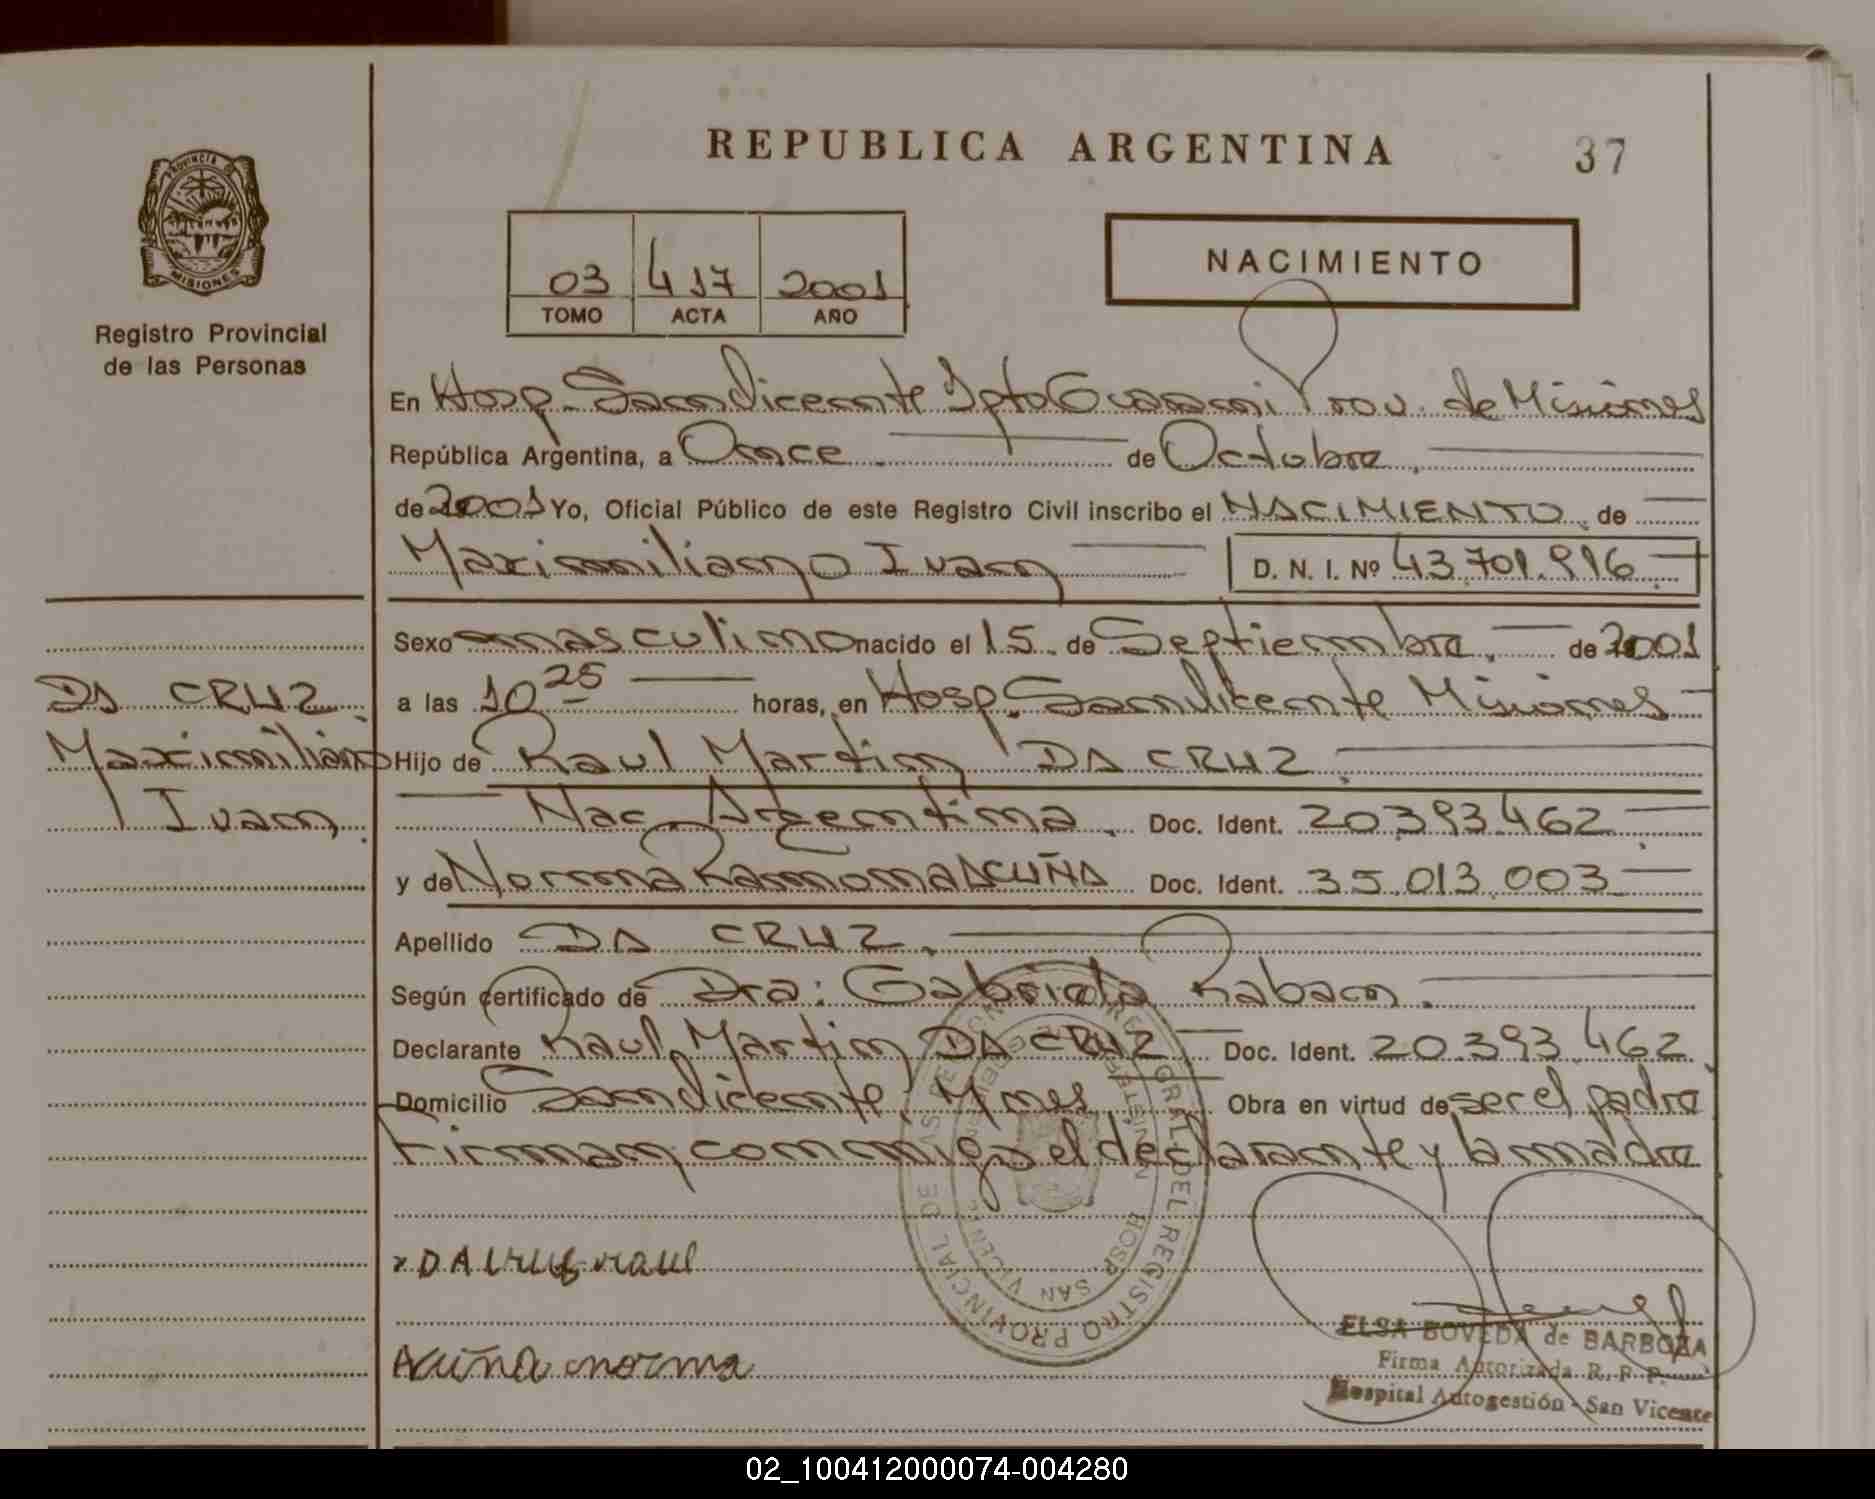 REPUBLICA ARGENTINA
37
PROVINCIA DE
MISIONES
Registro Provincial
de las Personas
03 417 2001
TOMO ACTA AÑO
NACIMIENTO
En Hosp. San Vicente Dpto Guarani Prov. de Misiones
República Argentina, a Once de Octubre
de 2001 Yo, Oficial Público de este Registro Civil inscribo el NACIMIENTO de
Maximiliano Ivan D. N. I. Nº 43.701.916
Sexo masculino nacido el 15 de Septiembre de 2001
a las 10 25 horas, en Hosp. San Vicente Misiones
Hijo de Raul Martin DA CRUZ
Nac. Argentina. Doc. Ident. 20.393.462
y de Norma Ramona ACUÑA Doc. Ident. 35.013.003
Apellido DA CRUZ.
Según certificado de Dra: Gabriela Raban.
Declarante Raul Martin DA CRUZ Doc. Ident. 20.393.462
Domicilio San Vicente, Mnes Obra en virtud de ser el padre
Firman conmigo el declarante y la madre
DA CRUZ
Maximiliano
Ivan
x DA cruz raul
Acuña norma
REGISTRO PROVINCIAL DE
HOSP. SAN VICENTE
ELSA BOVEDA de BARBOZA
Firma Autorizada R. P. P.
Hospital Autogestión - San Vicente
02_100412000074-004280